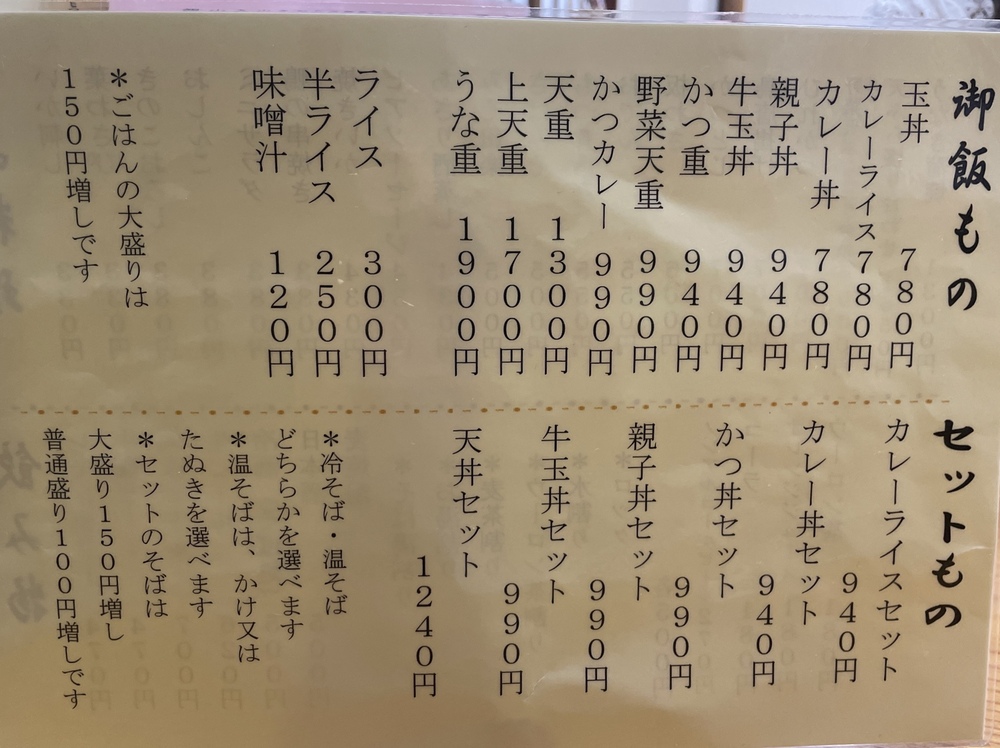 御飯もの
玉丼 780円
カレーライス 780円
カレー丼 780円
親子丼 940円
牛玉丼 940円
かつ重 940円
野菜天重 990円
かつカレー 990円
天重 1300円
上天重 1700円
うな重 1900円
ライス 300円
半ライス 250円
味噌汁 120円
*ごはんの大盛りは
150円増しです
セットもの
カレーライスセット
940円
カレー丼セット
940円
かつ丼セット
990円
親子丼セット
990円
牛玉丼セット
990円
天丼セット
1240円
*冷そば・温そば
どちらかを選べます
*温そばは、かけ又は
たぬきを選べます
*セットのそばは
大盛り150円増し
普通盛り100円増しです